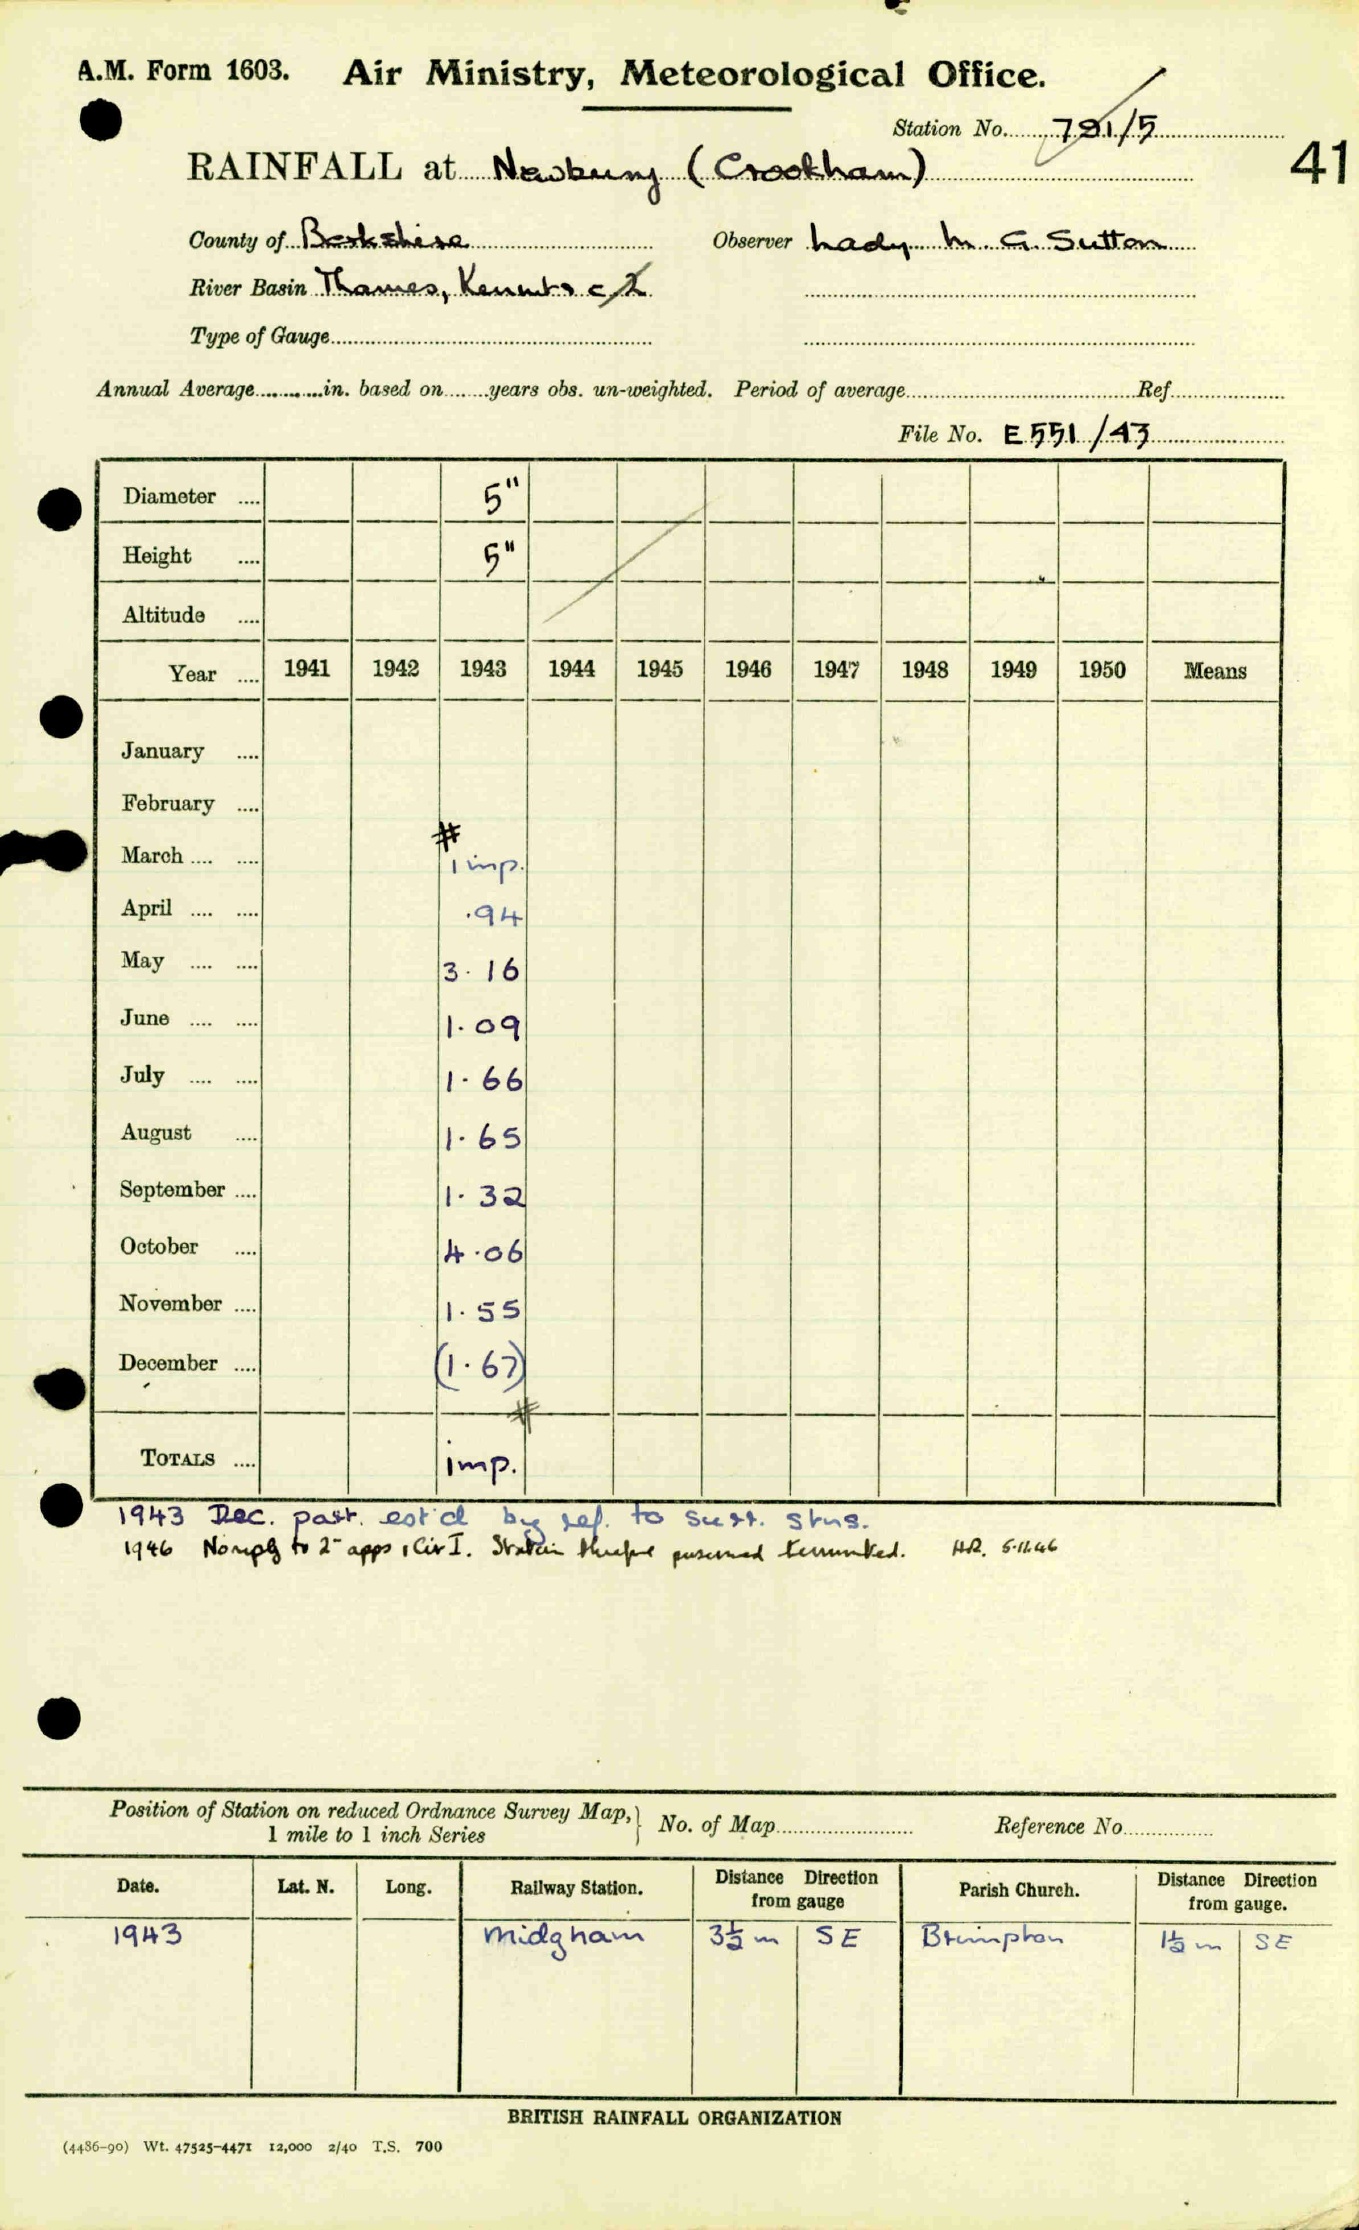 A.M. Form 1603. Air Ministry, Meteorological Office.
Station No. 791/5
41
RAINFALL at Newbury (Crookham)
County of Berkshire Observer Lady M. G. Sutton
River Basin Thames, Kennet
Type of Gauge
Annual Average in. based on years obs. un-weighted. Period of average Ref
File No. E551/43
Diameter .... 5"
Height .... 5"
Altitude ....
Year .... 1941 1942 1943 1944 1945 1946 1947 1948 1949 1950 Means
January ....
February ....
#
March .... .... imp.
April .... .... .94
May .... .... 3.16
June .... .... 1.09
July .... .... 1.66
August .... 1.65
September .... 1.32
October .... 4.06
November .... 1.55
December .... (1.67)
#
TOTALS .... imp.
1943 Dec. part. est'd by ref. to surr. stns.
1946 No reply to 2 apps, Cir I. Station therefore presumed terminated. 5.11.46
Position of Station on reduced Ordnance Survey Map, } No. of Map Reference No
1 mile to 1 inch Series
Date. Lat. N. Long. Railway Station. Distance Direction from gauge Parish Church. Distance Direction from gauge.
1943 Midgham 3½ m SE Brimpton 1½ m SE
BRITISH RAINFALL ORGANIZATION
(4486-90) Wt. 47525-4471 12,000 2/40 T.S. 700